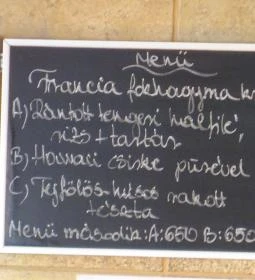 Menü
Francia fokhagyma kr
A) Rántott tengeri halfilé,
rizs + tartár
B) Hawaii csirke pürével
C) Tejfölös-húsos rakott
tészta
Menü második: A: 650 B: 650